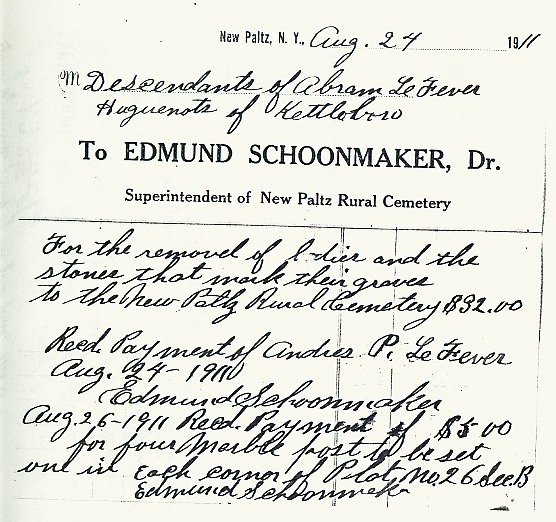 New Paltz, N. Y., Aug. 24 1911
M Descendants of Abram LeFever
Huguenots of Kettleboro
To EDMUND SCHOONMAKER, Dr.
Superintendent of New Paltz Rural Cemetery
For the removel of bodies and the
stones that mark their graves
to the New Paltz Rural Cemetery $32.00
Recd. Payment of Andries P. LeFever
Aug. 24 - 1911
Edmund Schoonmaker
Aug. 26 - 1911 Recd. Payment of $5 00
for four Marble post to be set
one in each corner of Plot No. 26 Sec B
Edmund Schoonmaker